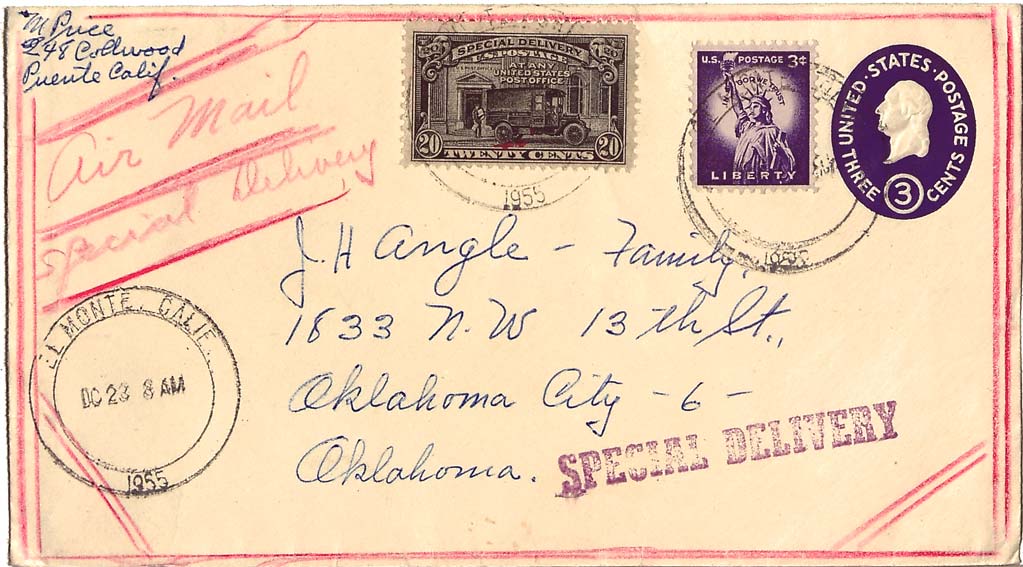 M Price
248 Collwood
Puente Calif.
Air Mail
Special Delivery
20 20
SPECIAL DELIVERY
U.S. POSTAGE
AT ANY
UNITED STATES
POST OFFICE
20 TWENTY CENTS 20
1955
U.S. POSTAGE 3¢
IN GOD WE TRUST
LIBERTY
1955
UNITED · STATES · POSTAGE
THREE 3 CENTS
J. H Angle - Family,
1833 N. W 13 th St.,
Oklahoma City - 6 -
Oklahoma.
EL MONTE, CALIF.
DC 23 8 AM
1955
SPECIAL DELIVERY